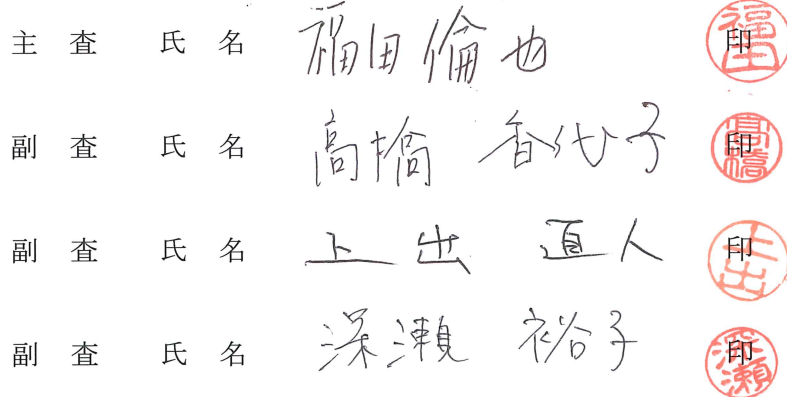 主 査 氏 名 福田倫也 印 福田
副 査 氏 名 高橋 香代子 印 高橋
副 査 氏 名 上出 直人 印 上出
副 査 氏 名 深瀬 裕子 印 深瀬